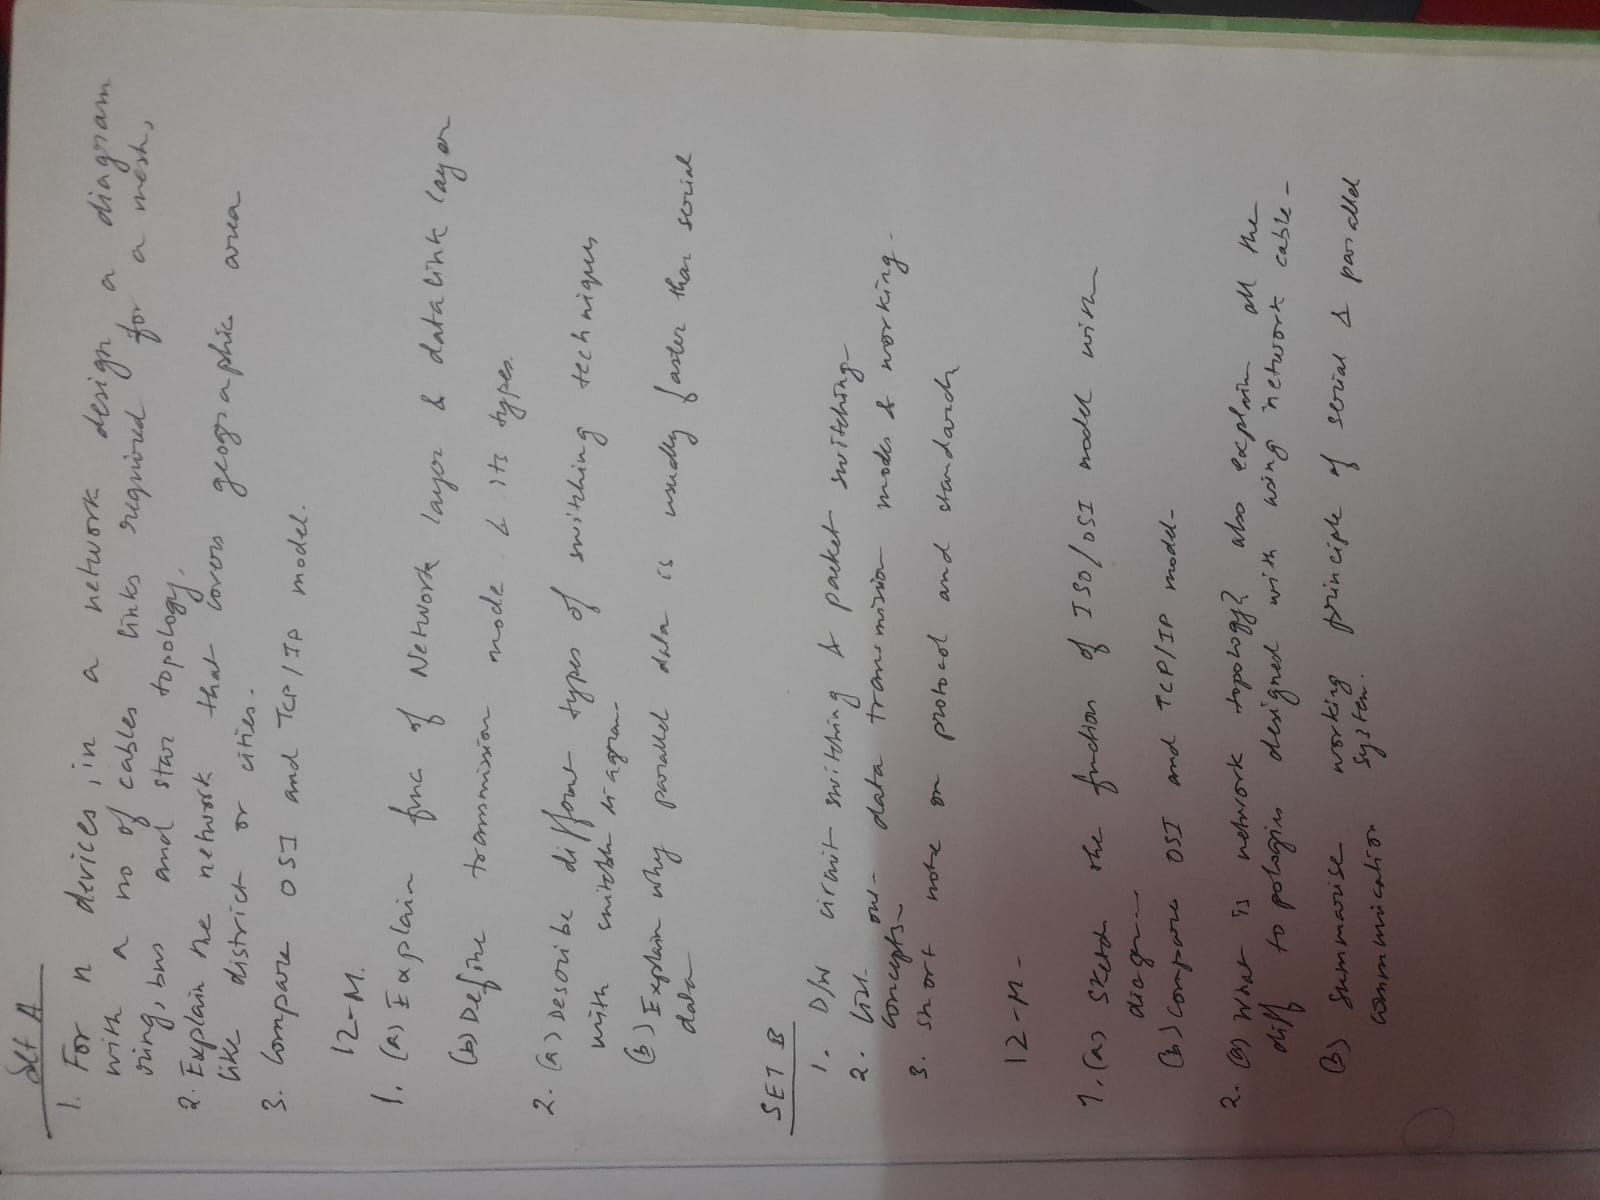 Set A
1. For n devices, in a network design a diagram
with a no of cables links required for a mesh,
ring, bus and star topology.
2. Explain the network that covers geographic area
like district or cities.
3. Compare OSI and TCP/IP model.
12-M.
1. (a) Explain func of Network layer & datalink layer
(b) Define transmission mode & its types.
2. (a) Describe different types of switching techniques
with suitable diagram
(b) Explain why parallel data is usually faster than serial
data
SET B
1. D/W circuit switching & packet switching
2. List our data transmission modes & working.
concepts
3. Short note on protocol and standards
12-M-
1. (a) Sketch the function of ISO/OSI model with
diagram
(b) compare OSI and TCP/IP model-
2. (a) What is network topology? also explain all the
diff topologies designed with using network cable-
(B) Summarise working principle of serial & parallel
communication system.